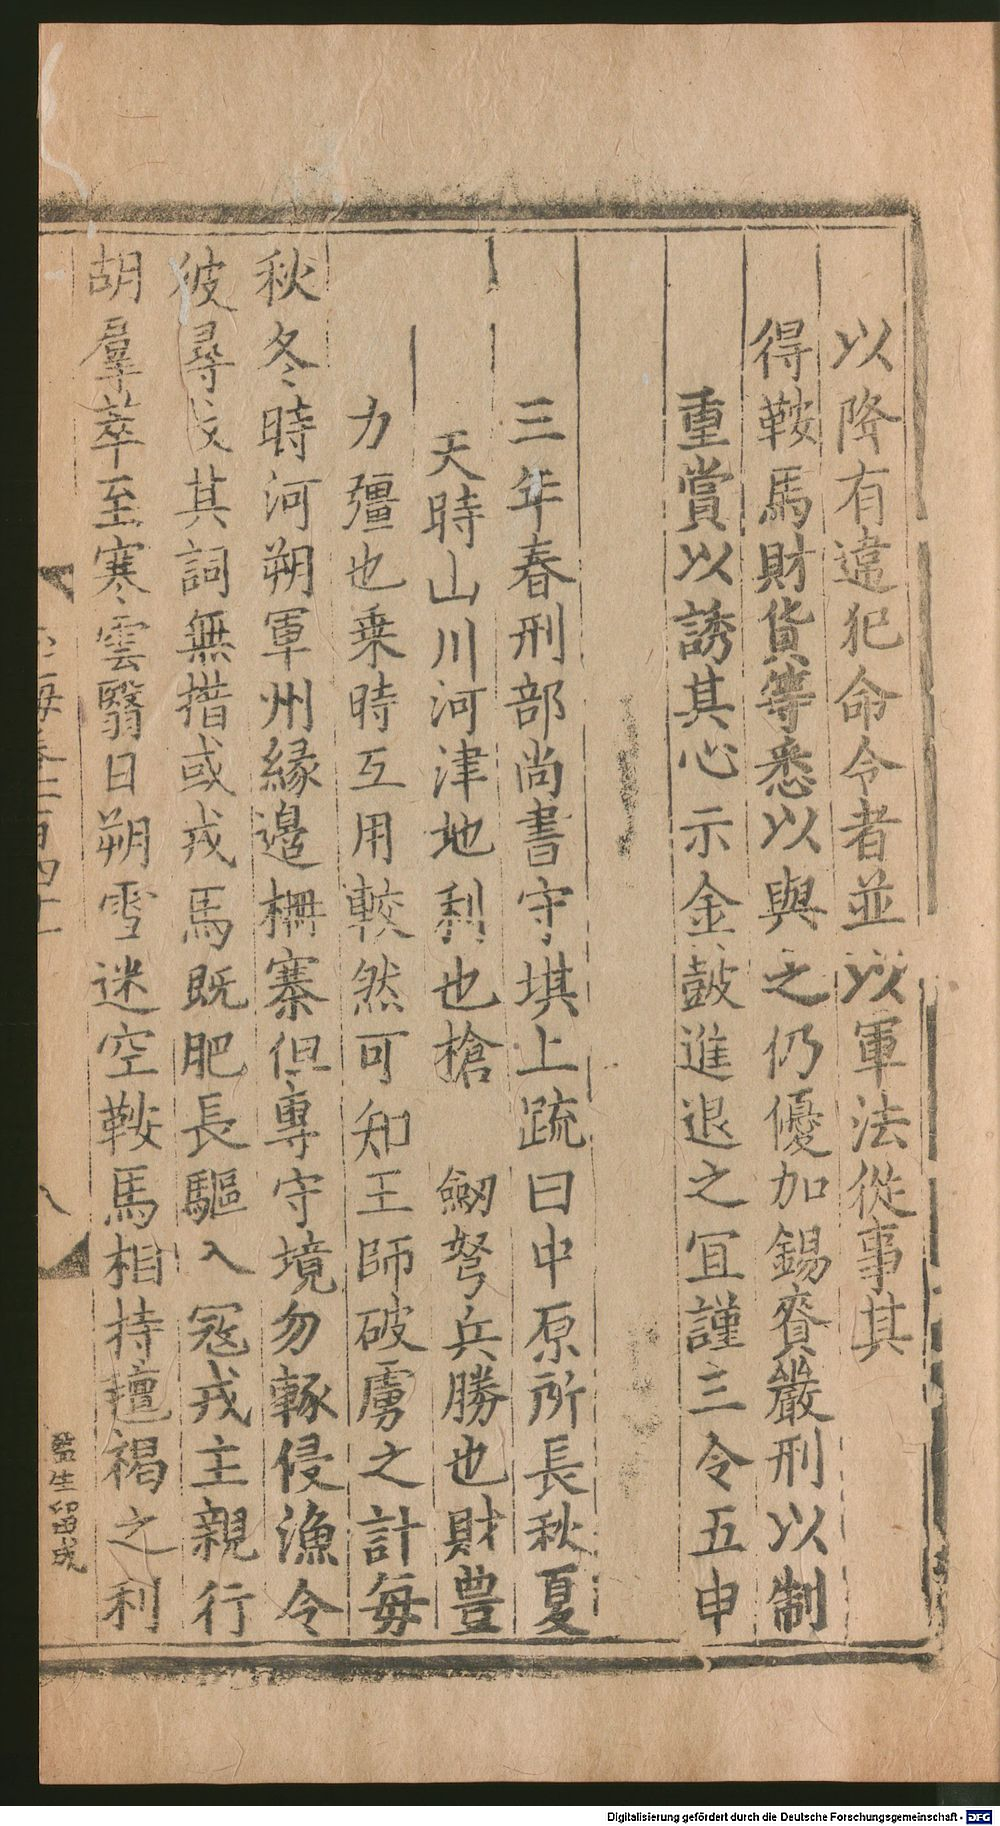 以降有違犯命令者並以軍法從事其
得鞍馬財貨等悉以與之仍優加錫賚嚴刑以制
重賞以誘其心示金鼓進退之宜謹三令五申
三年春刑部尚書守堪上疏曰中原所長秋夏
天時山川河津地利也槍劒弩兵勝也財豊
力彊也乗時互用較然可知王師破虜之計每
秋冬時河朔軍州縁邉柵寨但專守境勿輙侵漁令
彼尋戈其詞無措或戎馬既肥長驅入冦戎主親行
胡羣萃至寒雲翳日朔雪迷空鞍馬相持氊褐之利
玉海卷一百四十一
八
監生留成
Digitalisierung gefördert durch die Deutsche Forschungsgemeinschaft - DFG